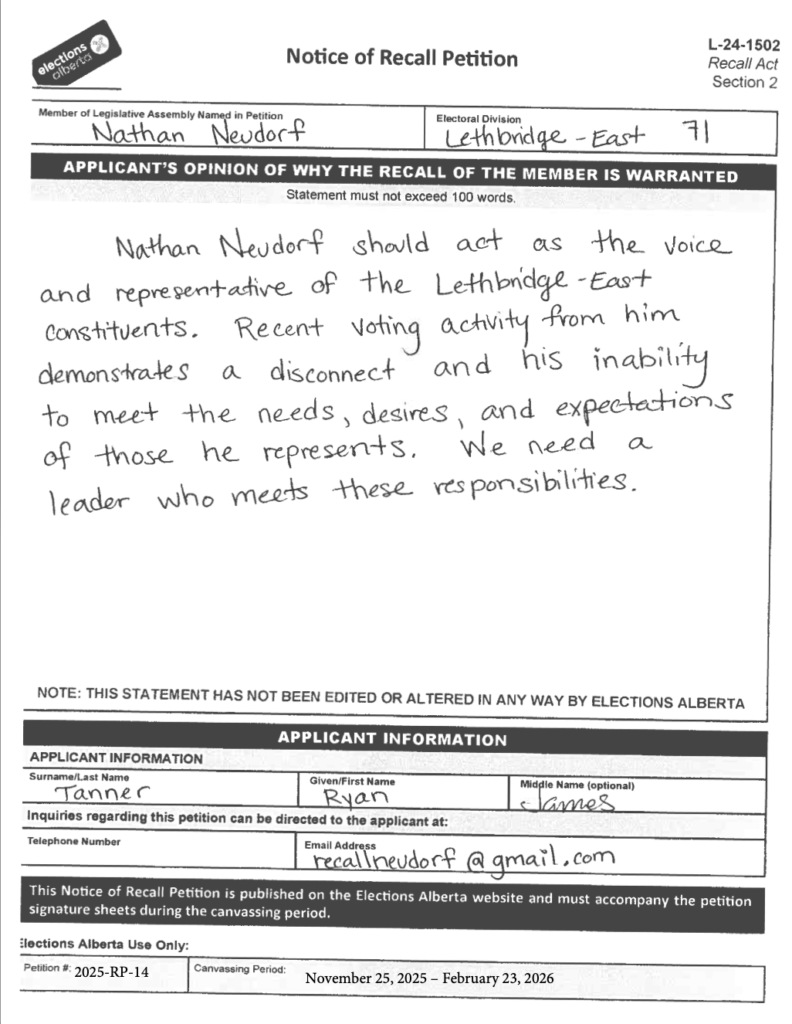 elections
alberta
Notice of Recall Petition
L-24-1502
Recall Act
Section 2
Member of Legislative Assembly Named in Petition
Nathan Neudorf
Electoral Division
Lethbridge - East 71
APPLICANT'S OPINION OF WHY THE RECALL OF THE MEMBER IS WARRANTED
Statement must not exceed 100 words.
Nathan Neudorf should act as the voice
and representative of the Lethbridge-East
constituents. Recent voting activity from him
demonstrates a disconnect and his inability
to meet the needs, desires, and expectations
of those he represents. We need a
leader who meets these responsibilities.
NOTE: THIS STATEMENT HAS NOT BEEN EDITED OR ALTERED IN ANY WAY BY ELECTIONS ALBERTA
APPLICANT INFORMATION
APPLICANT INFORMATION
Surname/Last Name
Tanner
Given/First Name
Ryan
Middle Name (optional)
James
Inquiries regarding this petition can be directed to the applicant at:
Telephone Number
Email Address
recallneudorf@gmail.com
This Notice of Recall Petition is published on the Elections Alberta website and must accompany the petition
signature sheets during the canvassing period.
Elections Alberta Use Only:
Petition #: 2025-RP-14
Canvassing Period: November 25, 2025 – February 23, 2026